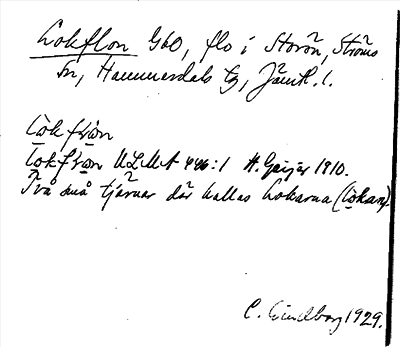 Lokflon Gbo, flo i Storön, Ströms
sn, Hammerdals tg, Jämtl. l.
Lokfrån
Lokfrån ULMA 446:1 H. Geijer 1910.
Två små tjärnar där kallas Lokarna (Lokan).
C. Lindberg 1929.